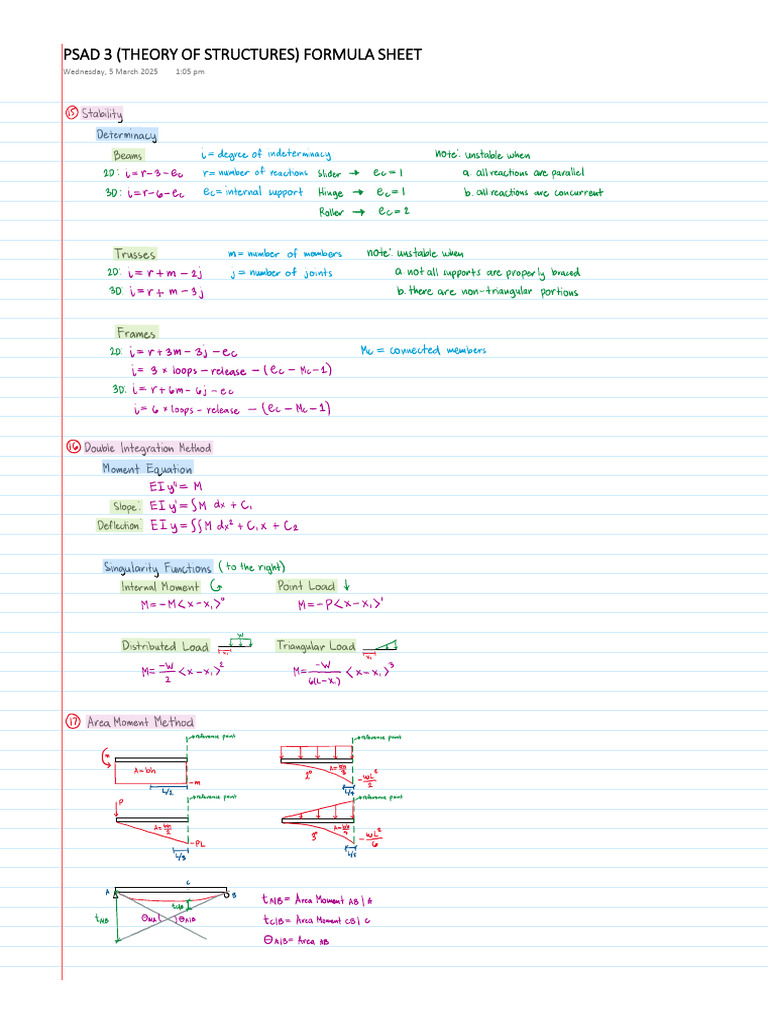 PSAD 3 (THEORY OF STRUCTURES) FORMULA SHEET
Wednesday, 5 March 2025 1:05 pm
15 Stability
Determinacy
Beams i = degree of indeterminacy note: unstable when
2D: i = r - 3 - ec r = number of reactions Slider → ec = 1 a. all reactions are parallel
3D: i = r - 6 - ec ec = internal support Hinge → ec = 1 b. all reactions are concurrent
Roller → ec = 2
Trusses m = number of members note: unstable when
2D: i = r + m - 2j j = number of joints a. not all supports are properly braced
3D: i = r + m - 3j b. there are non-triangular portions
Frames
2D: i = r + 3m - 3j - ec Mc = connected members
i = 3 × loops - release - (ec - Mc - 1)
3D: i = r + 6m - 6j - ec
i = 6 × loops - release - (ec - Mc - 1)
16 Double Integration Method
Moment Equation
EI y'' = M
Slope: EI y' = ∫M dx + C1
Deflection: EI y = ∫∫M dx² + C1x + C2
Singularity Functions (to the right)
Internal Moment Point Load ↓
M = -M<x - x1>⁰ M = -P<x - x1>¹
Distributed Load w x1 Triangular Load x1
M = -W/2 <x - x1>² M = -W/6(L-x1) <x - x1>³
17 Area Moment Method
reference point reference point
M A = bh -m L/2 2° A = bh/3 -WL²/2 L/4
reference point reference point
P A = bh/2 -PL L/3 3° A = bh/4 -WL²/6 L/5
A C B
tA/B θA/B tC/B θA/B
tA/B = Area Moment AB | A
tC/B = Area Moment CB | C
θA/B = Area AB